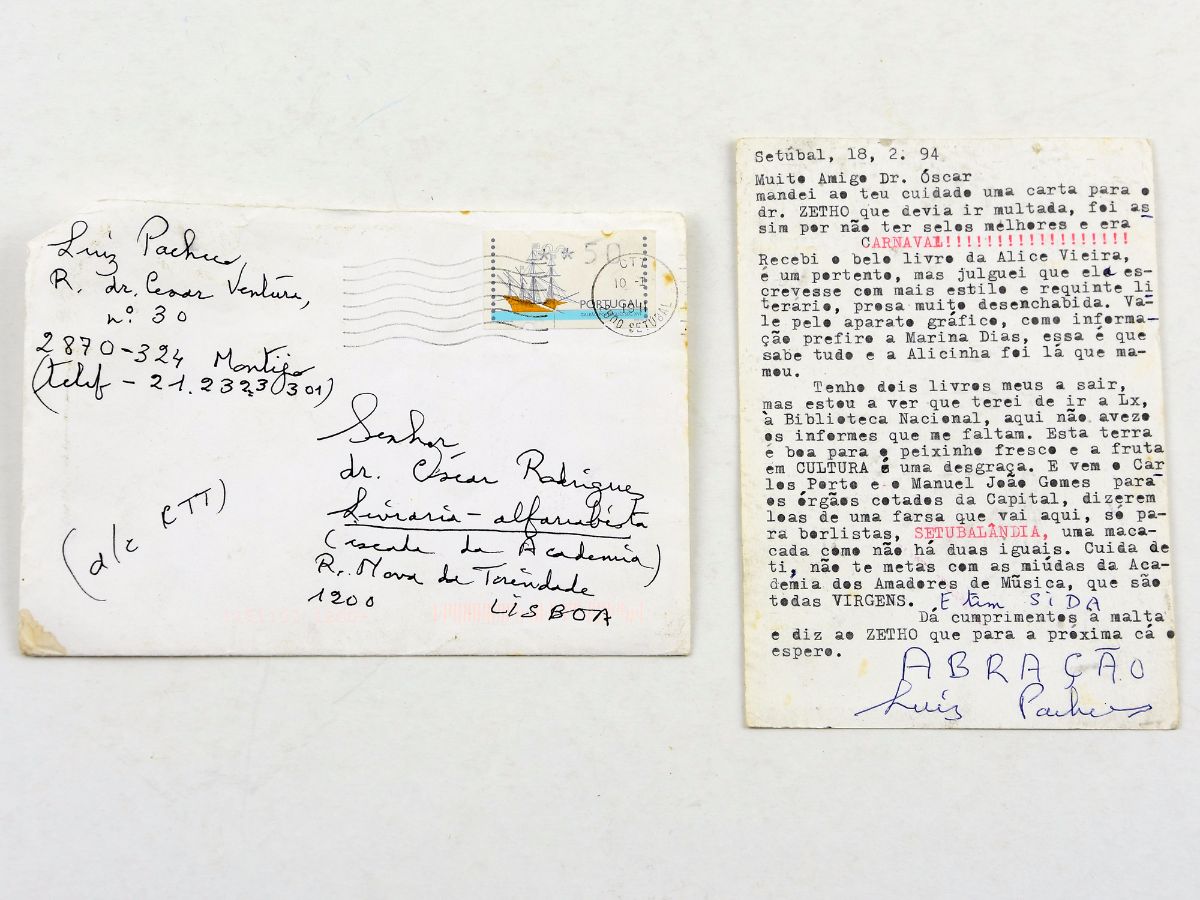 Luiz Pacheco
R. dr. Cesar Ventura,
nº 30
2870-324 Montijo
(telef - 21.2323 301)
50
PORTUGAL
CTT
10
SETÚBAL
Senhor
dr. Óscar Rodriguez
Livraria-alfarrabista
(escada da Academia)
R. Nova da Trindade
1200 LISBOA
(d/c RTT)
Setúbal, 18, 2. 94
Muito Amigo Dr. Óscar
mandei ao teu cuidado uma carta para o
dr. ZETHO que devia ir multada, foi as
sim por não ter selos melhores e era
CARNAVAL!!!!!!!!!!!!!!!!!!!
Recebi o belo livro da Alice Vieira,
é um portento, mas julguei que ela es-
crevesse com mais estilo e requinte li
terário, prosa muito desenchabida. Va-
le pelo aparato gráfico, como informa-
ção prefiro a Marina Dias, essa é que
sabe tudo e a Alicinha foi lá que ma-
mou.
Tenho dois livros meus a sair,
mas estou a ver que terei de ir a Lx,
à Biblioteca Nacional, aqui não avezo
os informes que me faltam. Esta terra
é boa para o peixinho fresco e a fruta
em CULTURA é uma desgraça. E vem o Car
los Porto e o Manuel João Gomes para
os órgãos cotados da Capital, dizerem
loas de uma farsa que vai aqui, só pa-
ra borlistas, SETUBALÂNDIA, uma maca-
cada como não há duas iguais. Cuida de
ti, não te metas com as miúdas da Aca-
demia dos Amadores de Música, que são
todas VIRGENS. E têm SIDA
Dá cumprimentos à malta
e diz ao ZETHO que para a próxima cá o
espero.
ABRAÇÃO
Luiz Pacheco